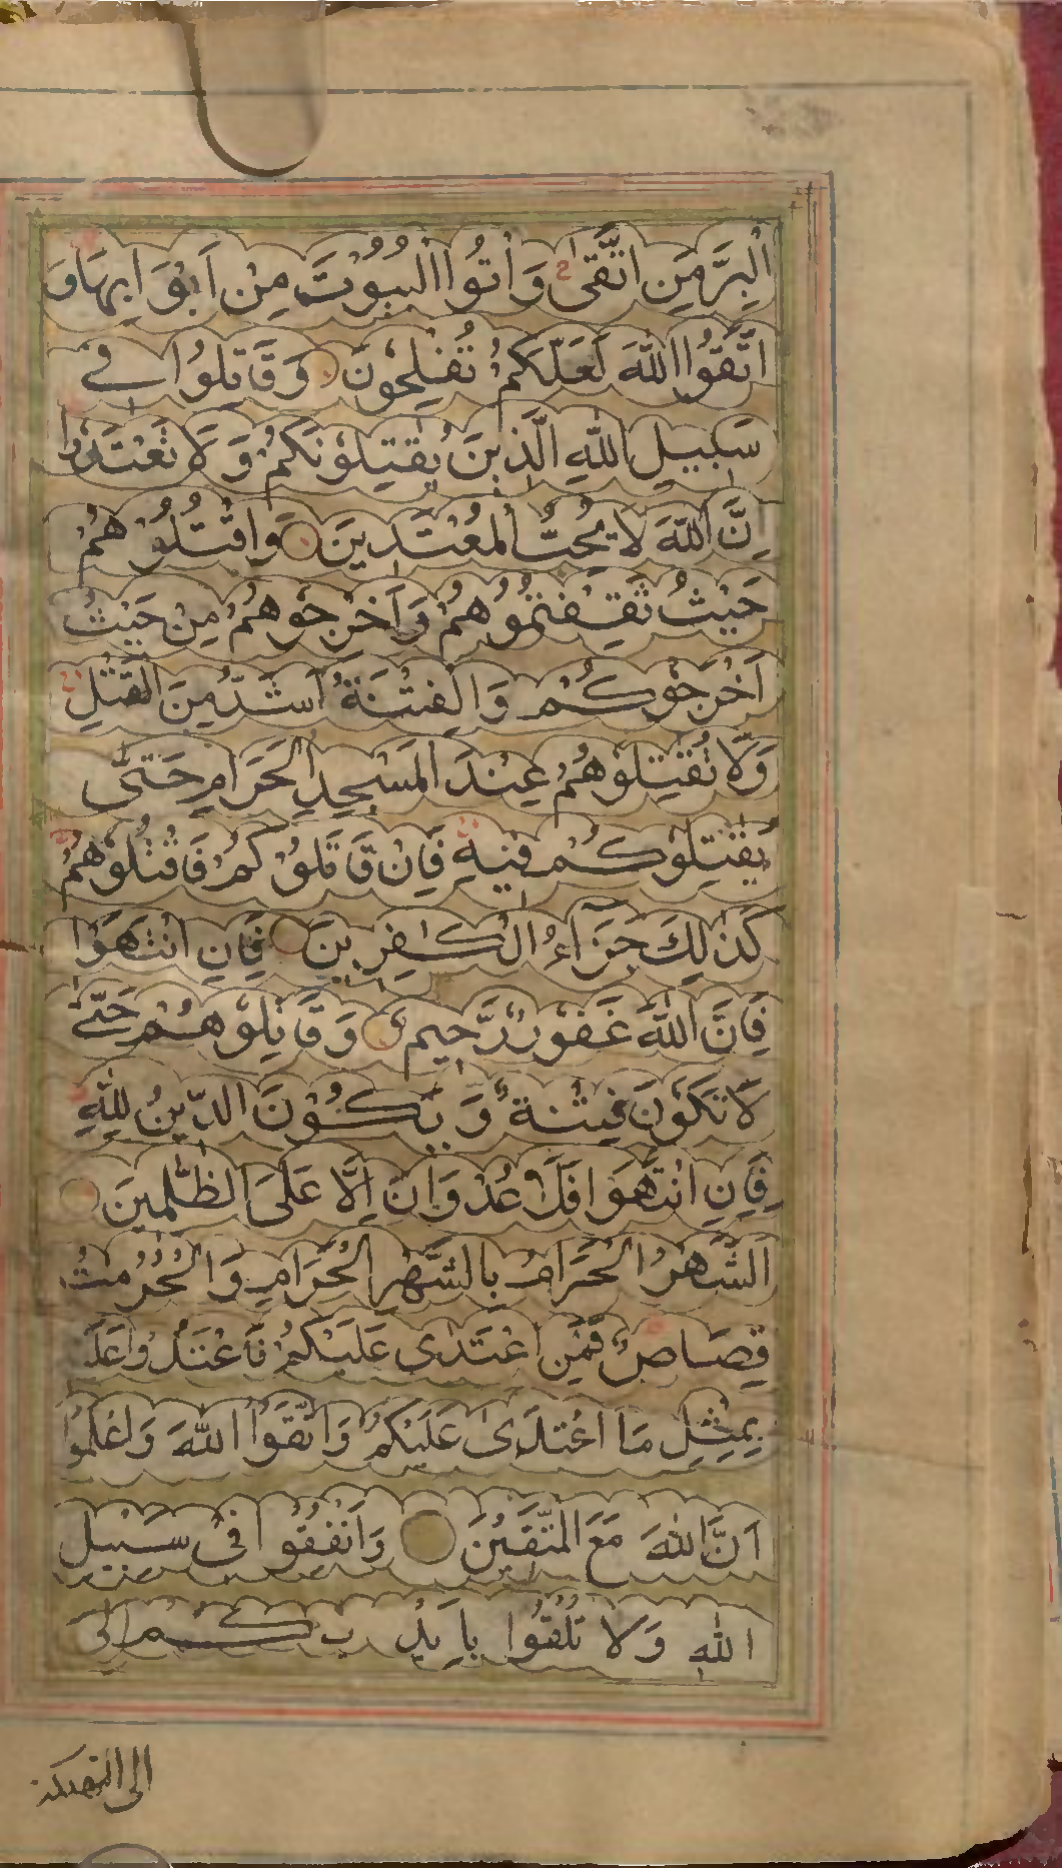 الْبِرَّ مَنِ اتَّقٰى وَأْتُوا الْبُيُوْتَ مِنْ اَبْوَابِهَا وَ
اتَّقُوا اللّٰهَ لَعَلَّكُمْ تُفْلِحُوْنَ وَقَاتِلُوْا فِے
سَبِيْلِ اللّٰهِ الَّذِيْنَ يُقٰتِلُوْنَكُمْ وَلَا تَعْتَدُوْا
اِنَّ اللّٰهَ لَا يُحِبُّ الْمُعْتَدِيْنَ وَاقْتُلُوْهُمْ
حَيْثُ ثَقِفْتُمُوْهُمْ وَاَخْرِجُوْهُمْ مِنْ حَيْثُ
اَخْرَجُوْكُمْ وَالْفِتْنَةُ اَشَدُّ مِنَ الْقَتْلِ
وَلَا تُقٰتِلُوْهُمْ عِنْدَ الْمَسْجِدِ الْحَرَامِ حَتّٰى
يُقٰتِلُوْكُمْ فِيْهِ فَاِنْ قٰتَلُوْكُمْ فَاقْتُلُوْهُمْ
كَذٰلِكَ جَزَآءُ الْكٰفِرِيْنَ فَاِنِ انْتَهَوْا
فَاِنَّ اللّٰهَ غَفُوْرٌ رَّحِيْمٌ وَقَاتِلُوْهُمْ حَتّٰے
لَا تَكُوْنَ فِتْنَةٌ وَيَكُوْنَ الدِّيْنُ لِلّٰهِ
فَاِنِ انْتَهَوْا فَلَا عُدْوَانَ اِلَّا عَلَى الظّٰلِمِيْنَ
اَلشَّهْرُ الْحَرَامُ بِالشَّهْرِ الْحَرَامِ وَالْحُرُمٰتُ
قِصَاصٌ فَمَنِ اعْتَدٰى عَلَيْكُمْ فَاعْتَدُوْا عَلَ
بِمِثْلِ مَا اعْتَدٰى عَلَيْكُمْ وَاتَّقُوا اللّٰهَ وَاعْلَمُوْا
اَنَّ اللّٰهَ مَعَ الْمُتَّقِيْنَ وَاَنْفِقُوْا فِى سَبِيْلِ
اللّٰهِ وَلَا تُلْقُوْا بِاَيْدِيكُمْ اِلَى
الى التهلكة